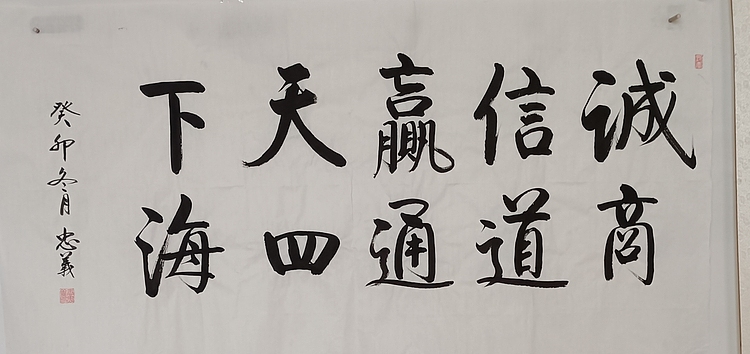 诚信赢天下
商道通四海
癸卯冬月 忠義